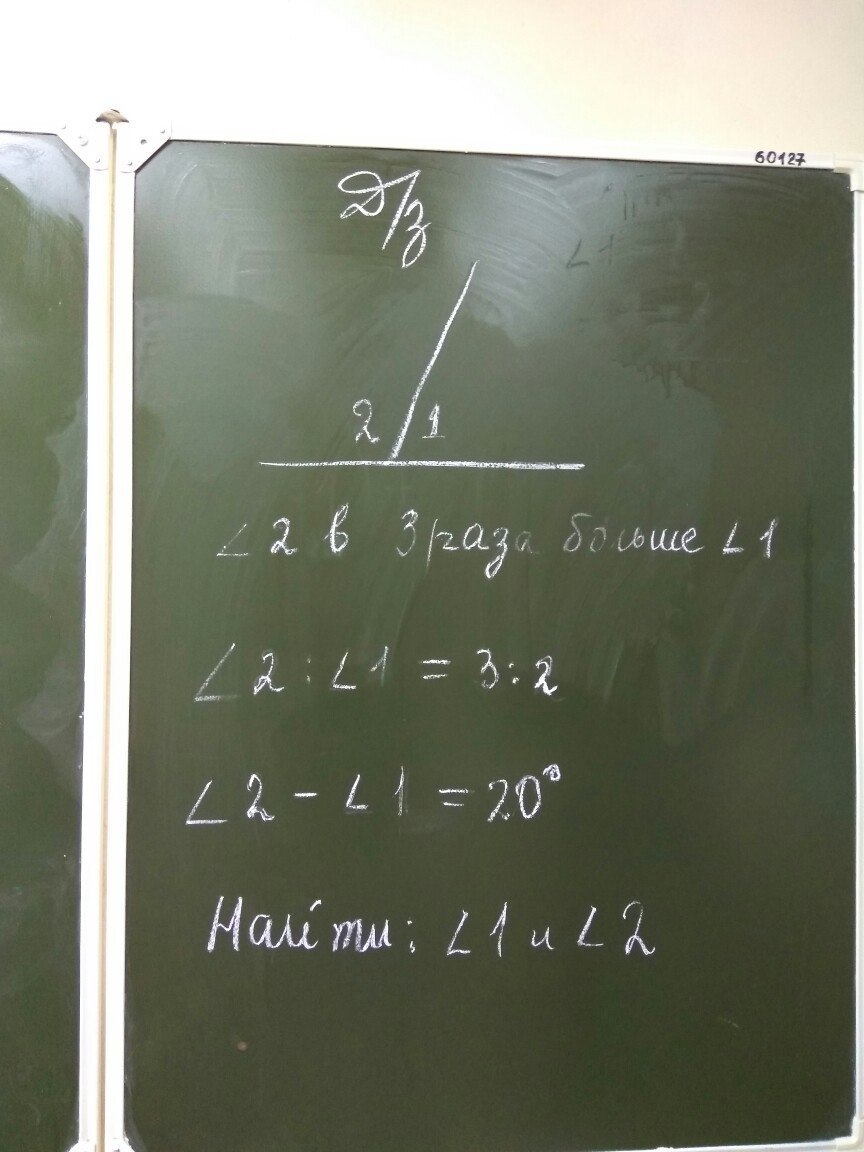 60127
Д/з
∠1
2 1
∠2 в 3 раза больше ∠1
∠2 : ∠1 = 3 : 2
∠2 - ∠1 = 20°
Найти: ∠1 и ∠2